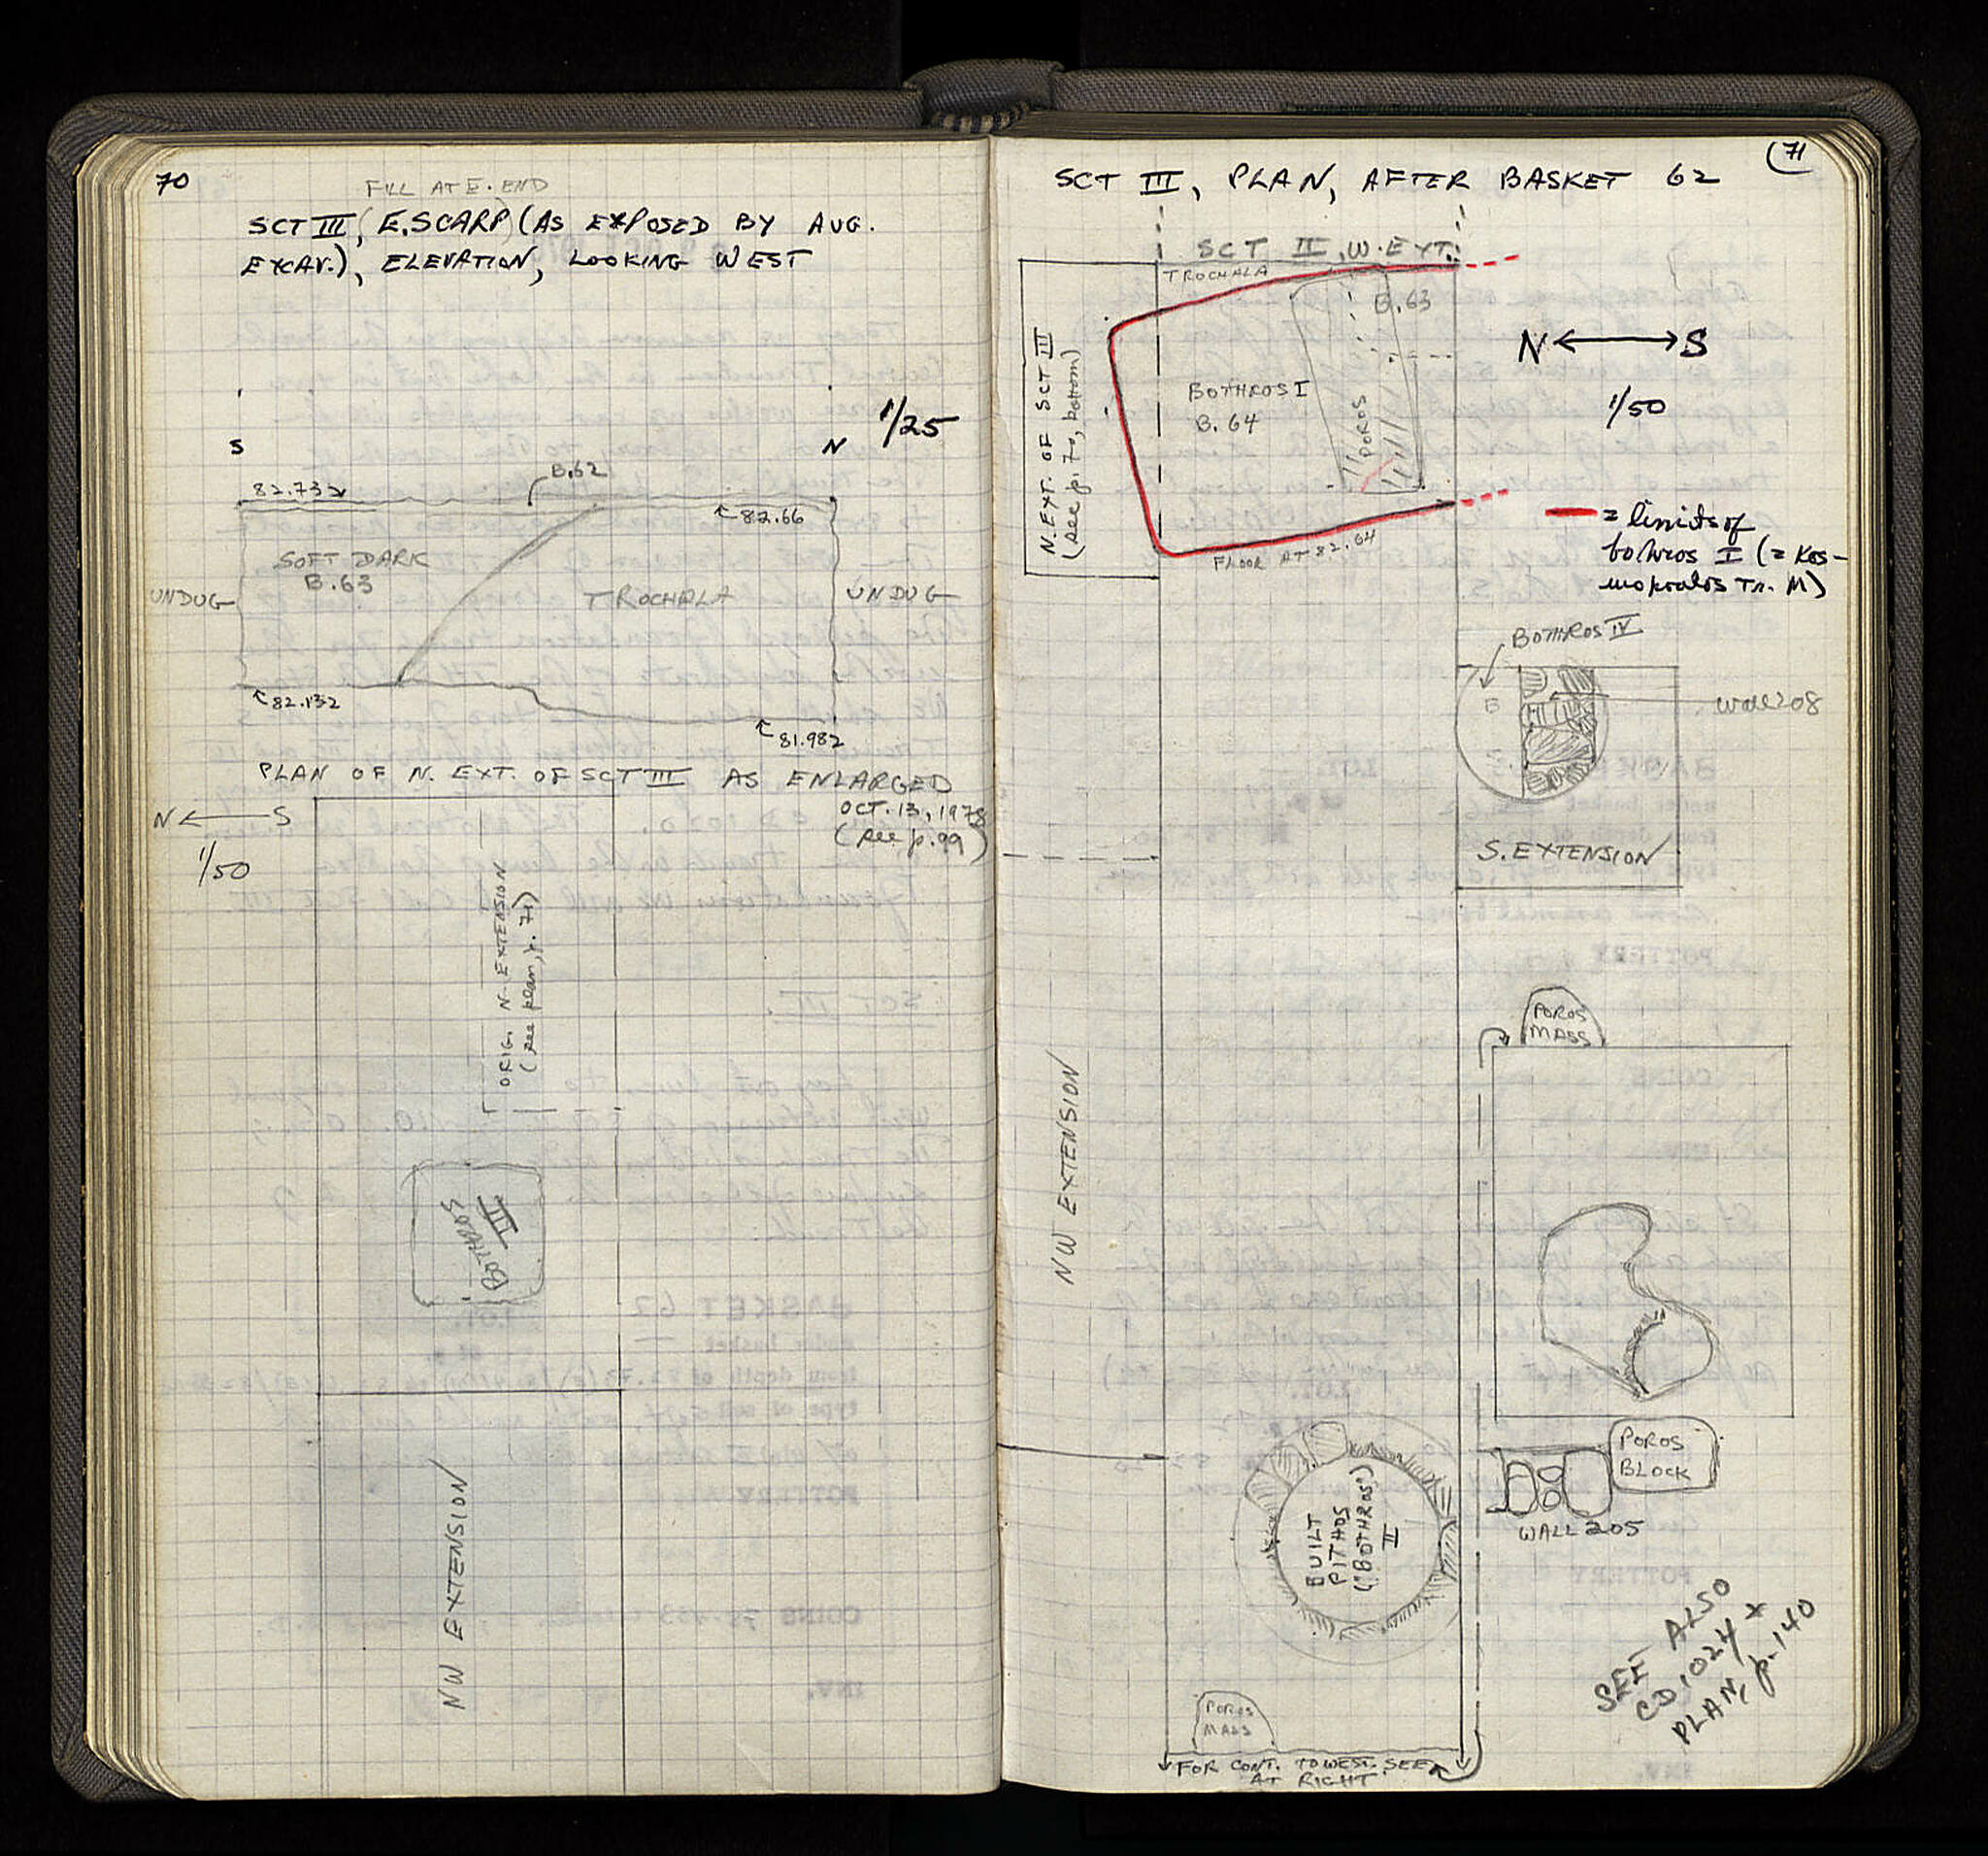 70
FILL AT E. END
SCT III, E. SCARP (AS EXPOSED BY AUG.
EXCAV.), ELEVATION, LOOKING WEST
1/25
S
N
B.62
82.732
82.66
SOFT DARK
B.63
TROCHALA
UNDUG
UNDUG
82.132
81.982
PLAN OF N. EXT. OF SCT III AS ENLARGED
OCT. 13, 1978
(see p. 99)
N S
1/50
ORIG. N. EXTENSION
(see plan, p. 71)
BOTHROS
III
NW EXTENSION
71
SCT III, PLAN, AFTER BASKET 62
SCT II, W. EXT.
TROCHALA
B.63
N. EXT. OF SCT III
(see p. 70, bottom)
BOTHROS I
B. 64
POROS
N S
1/50
FLOOR AT 82.64
= limits of
bothros I (= Kos-
mopoulos Tr. M)
BOTHROS IV
Wall 208
S. EXTENSION
POROS
MASS
NW EXTENSION
BUILT
PITHOS
("BOTHROS")
II
POROS
BLOCK
WALL 205
POROS
MASS
FOR CONT. TO WEST, SEE
AT RIGHT
SEE ALSO
CD, 024 +
PLAN, p. 140